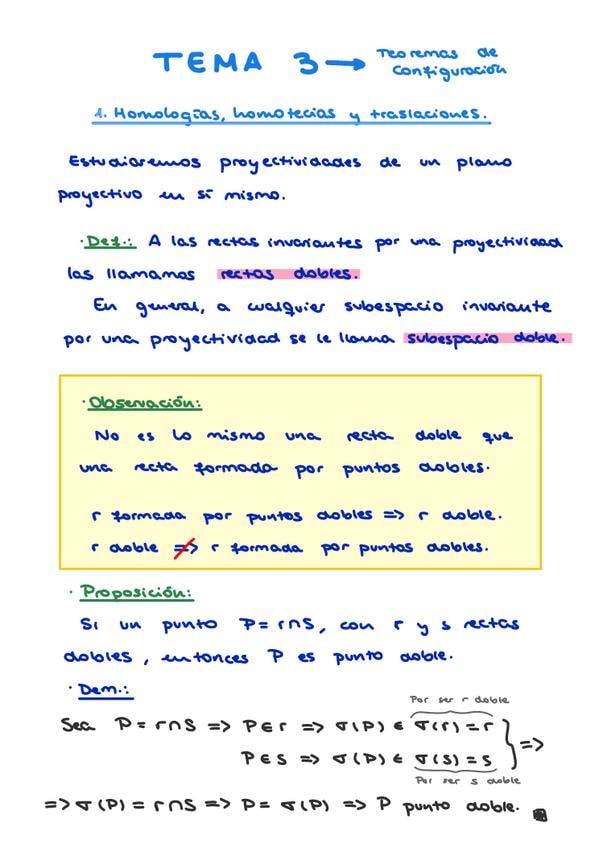 TEMA 3 → Teoremas de
configuración
1. Homologías, homotecias y traslaciones.
Estudiaremos proyectividades de un plano
proyectivo en sí mismo.
· Def.: A las rectas invariantes por una proyectividad
las llamamos rectas dobles.
En general, a cualquier subespacio invariante
por una proyectividad se le llama subespacio doble.
· Observación:
No es lo mismo una recta doble que
una recta formada por puntos dobles.
r formada por puntos dobles => r doble.
r doble ≠> r formada por puntos dobles.
· Proposición:
Si un punto P = r∩s, con r y s rectas
dobles, entonces P es punto doble.
· Dem.:
Por ser r doble
Sea P = r∩s => P∈r => σ(P) ∈ σ(r) = r
P∈s => σ(P) ∈ σ(s) = s } =>
Por ser s doble
=> σ(P) = r∩s => P = σ(P) => P punto doble. ■